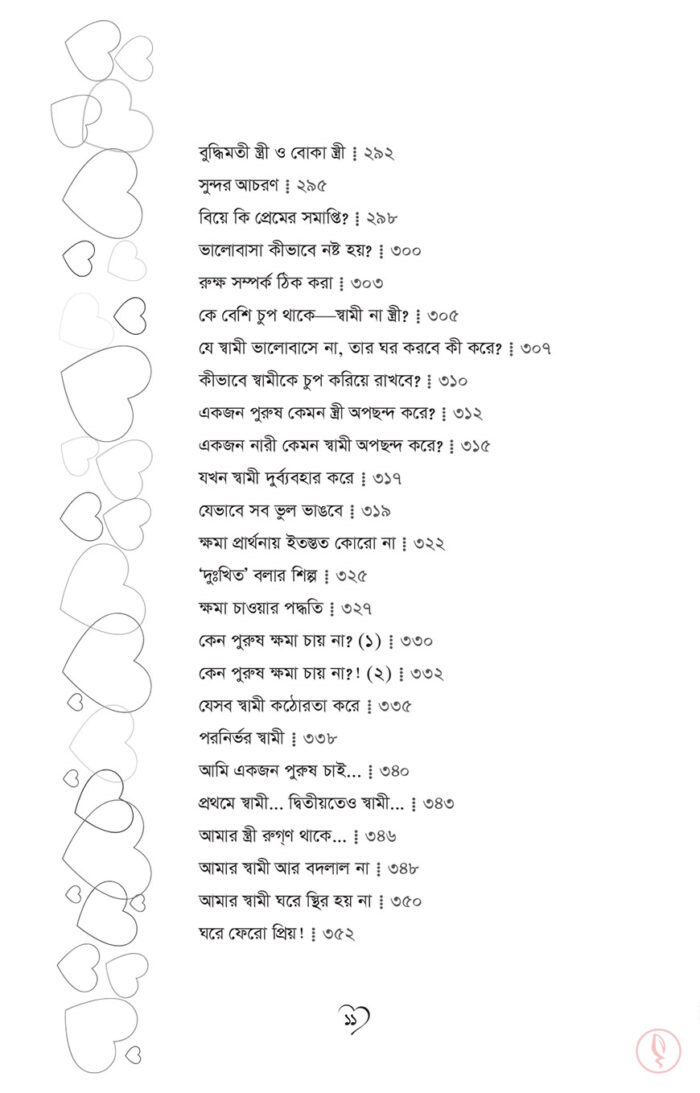 বুদ্ধিমতী স্ত্রী ও বোকা স্ত্রী ⁞ ২৯২
সুন্দর আচরণ ⁞ ২৯৫
বিয়ে কি প্রেমের সমাপ্তি? ⁞ ২৯৮
ভালোবাসা কীভাবে নষ্ট হয়? ⁞ ৩০০
রুক্ষ সম্পর্ক ঠিক করা ⁞ ৩০৩
কে বেশি চুপ থাকে—স্বামী না স্ত্রী? ⁞ ৩০৫
যে স্বামী ভালোবাসে না, তার ঘর করবে কী করে? ⁞ ৩০৭
কীভাবে স্বামীকে চুপ করিয়ে রাখবে? ⁞ ৩১০
একজন পুরুষ কেমন স্ত্রী অপছন্দ করে? ⁞ ৩১২
একজন নারী কেমন স্বামী অপছন্দ করে? ⁞ ৩১৫
যখন স্বামী দুর্ব্যবহার করে ⁞ ৩১৭
যেভাবে সব ভুল ভাঙবে ⁞ ৩১৯
ক্ষমা প্রার্থনায় ইতস্তত কোরো না ⁞ ৩২২
‘দুঃখিত’ বলার শিল্প ⁞ ৩২৫
ক্ষমা চাওয়ার পদ্ধতি ⁞ ৩২৭
কেন পুরুষ ক্ষমা চায় না? (১) ⁞ ৩৩০
কেন পুরুষ ক্ষমা চায় না?! (২) ⁞ ৩৩২
যেসব স্বামী কঠোরতা করে ⁞ ৩৩৫
পরনির্ভর স্বামী ⁞ ৩৩৮
আমি একজন পুরুষ চাই... ⁞ ৩৪০
প্রথমে স্বামী... দ্বিতীয়তেও স্বামী... ⁞ ৩৪৩
আমার স্ত্রী রুগ্‌ণ থাকে... ⁞ ৩৪৬
আমার স্বামী আর বদলাল না ⁞ ৩৪৮
আমার স্বামী ঘরে স্থির হয় না ⁞ ৩৫০
ঘরে ফেরো প্রিয়! ⁞ ৩৫২
১১